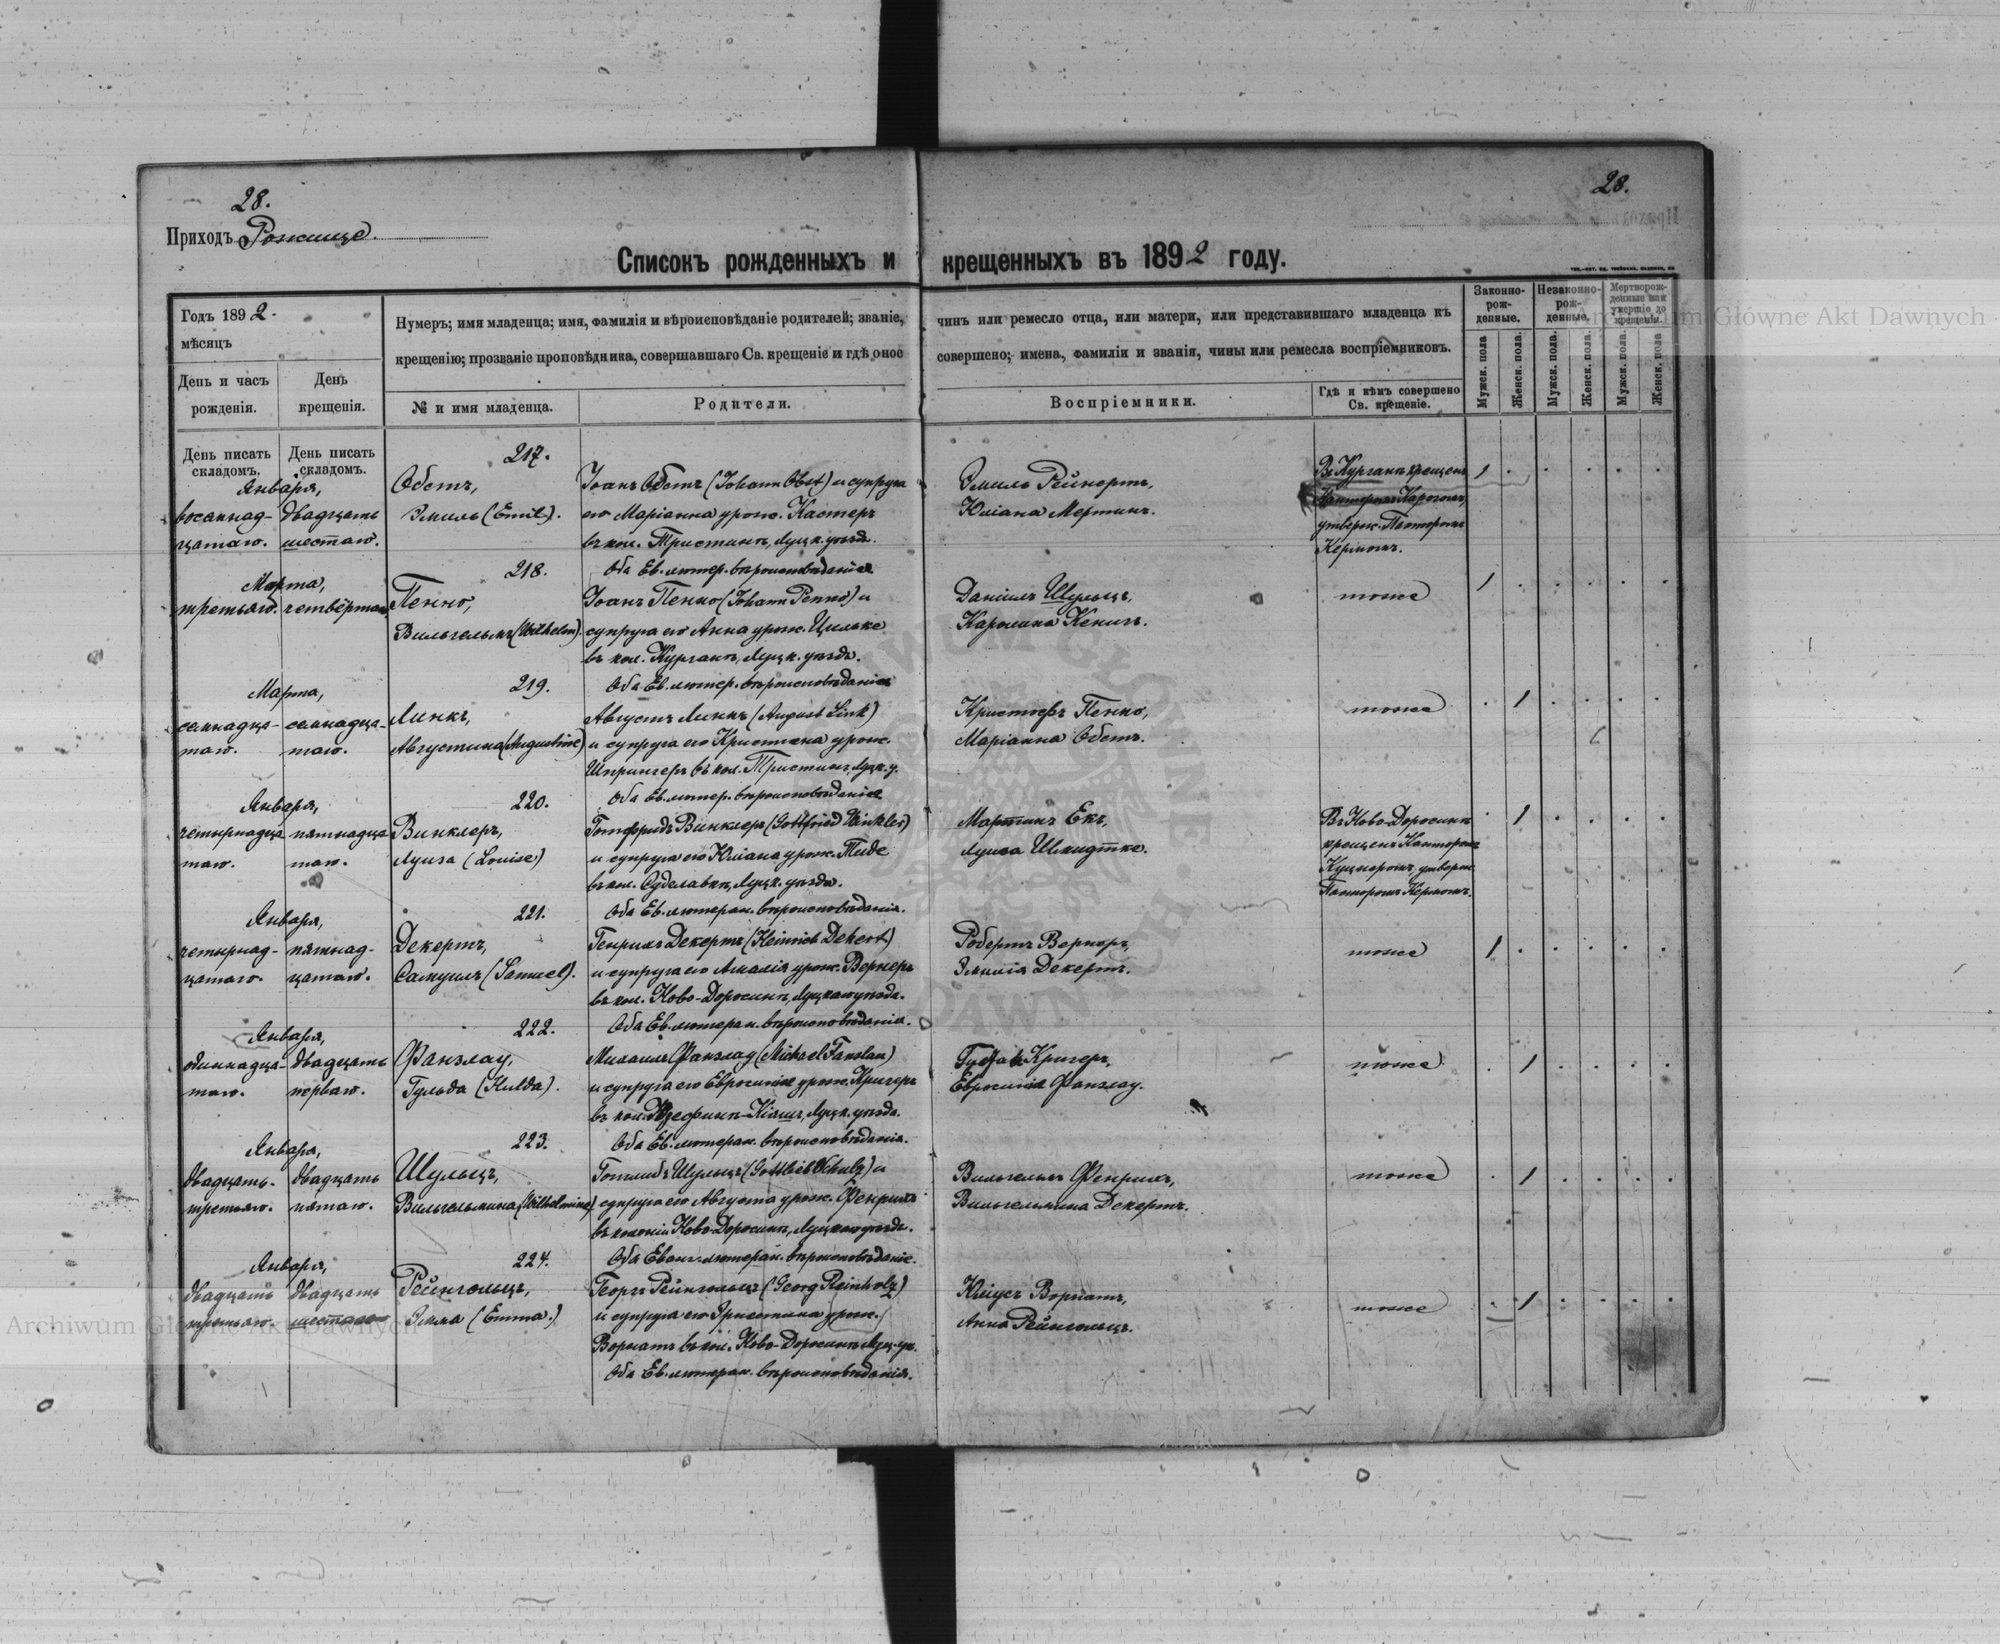 28.
28.
Приходъ Рожище.
Списокъ рожденныхъ и крещенныхъ въ 1892 году.
Годъ 1892.
мѣсяцъ
День и часъ рожденія.
День крещенія.
Нумеръ; имя младенца; имя, фамилія и вѣроисповѣданіе родителей; званіе, чинъ или ремесло отца, или матери, или представившаго младенца къ
крещенію; прозваніе проповѣдника, совершавшаго Св. крещеніе и гдѣ оное совершено; имена, фамиліи и званія, чины или ремесла воспріемниковъ.
№ и имя младенца.
Родители.
Воспріемники.
Гдѣ и кѣмъ совершено Св. крещеніе.
Законно-рож-денные.
Незаконно-рож-денные.
Мертворож-денные или умершіе до крещенія.
Мужск. пола
Женск. пола.
Мужск. пола.
Женск. пола.
Мужск. пола.
Женск. пола
День писать складомъ.
День писать складомъ.
217.
Января,
восемнад-цатаго.
двадцать шестаго.
Обстъ,
Эмиль (Emil).
Іоанъ Обстъ (Johann Obst) и супруга
его Маріанна урож. Кастеръ
въ кол. Тристинъ, Луцк. уѣзда.
Оба Ев. лютер. вѣроисповѣданія
Эмиль Рейнертъ,
Юліана Мертинъ.
Въ Курганѣ крещенъ
утвержд. Пасторомъ
Кермомъ.
218.
Марта,
третьяго.
четвёртаго
Пенно,
Вильгельмъ (Wilhelm).
Іоанъ Пенно (Johann Penno) и
супруга его Анна урож. Цильке
въ кол. Курганъ, Луцк. уѣзда.
Оба Ев. лютер. вѣроисповѣданія
Даніилъ Шульцъ,
Каролина Кенигъ.
тоже
219.
Марта,
семнадца-таго.
семнадца-таго.
Линкъ,
Августина (Augustine)
Августъ Линкъ (August Link)
и супруга его Кристина урож.
Шпрингеръ въ кол. Тристинъ, Луцк. у.
Оба Ев. лютер. вѣроисповѣданія
Кристофъ Пенно,
Маріанна Обстъ.
тоже
220.
Января,
четырнадца таго.
пятнадца таго.
Винклеръ,
Луиза (Louise)
Готфридъ Винклеръ (Gottfried Winkler)
и супруга его Юліана урож. Тиде
въ кол. Луцк. уѣзда.
Оба Ев. лютеран. вѣроисповѣданія.
Мартинъ Екъ,
Луиза Шмидтке.
Въ Ново-Доросинѣ
крещенъ Канторомъ
утвержд.
Пасторомъ Кермомъ.
221.
Января,
четырнад-цатаго.
пятнад-цатаго.
Декертъ,
Самуилъ (Samuel).
Генрихъ Декертъ (Heinrich Dekert)
и супруга его Амалія урож. Вернеръ
въ кол. Ново-Доросинъ, Луцкаго уѣзда.
Оба Ев. лютеран. вѣроисповѣданія.
Робертъ Вернеръ,
Эмилія Декертъ.
тоже
222.
Января,
одиннадца-таго.
двадцать перваго.
Фанзлау,
Гульда (Hulda).
Михаилъ Фанзлау (Michael Fanslau)
и супруга его Евросинія урож. Кригеръ
въ кол. Луцк. уѣзда.
Оба Ев. лютеран. вѣроисповѣданія.
Густавъ Кригеръ,
Евросинія Фанзлау.
тоже
223.
Января,
двадцать-третьяго.
двадцать пятаго.
Шульцъ,
Вильгельмина (Wilhelmine)
Готлибъ Шульцъ (Gottlieb Schulz) и
супруга его Августа урож. Фенрихъ
въ колоніи Ново-Доросинъ, Луцкаго уѣзда.
Оба Еванг. лютеран. вѣроисповѣданіе.
Вильгельмъ Фенрихъ,
Вильгельмина Декертъ.
тоже
224.
Января,
двадцать третьяго.
двадцать шестаго
Рейнгольцъ,
Эмма (Emma.)
Георгъ Рейнгольцъ (Georg Reinholz)
и супруга его Эрнестина урож.
Ворматъ въ кол. Ново-Доросинъ Луц. уѣ.
Оба Ев. лютеран. вѣроисповѣданія.
Юліусъ Ворматъ,
Анна Рейнгольцъ.
тоже
Archiwum Główne Akt Dawnych
Archiwum Główne Akt Dawnych